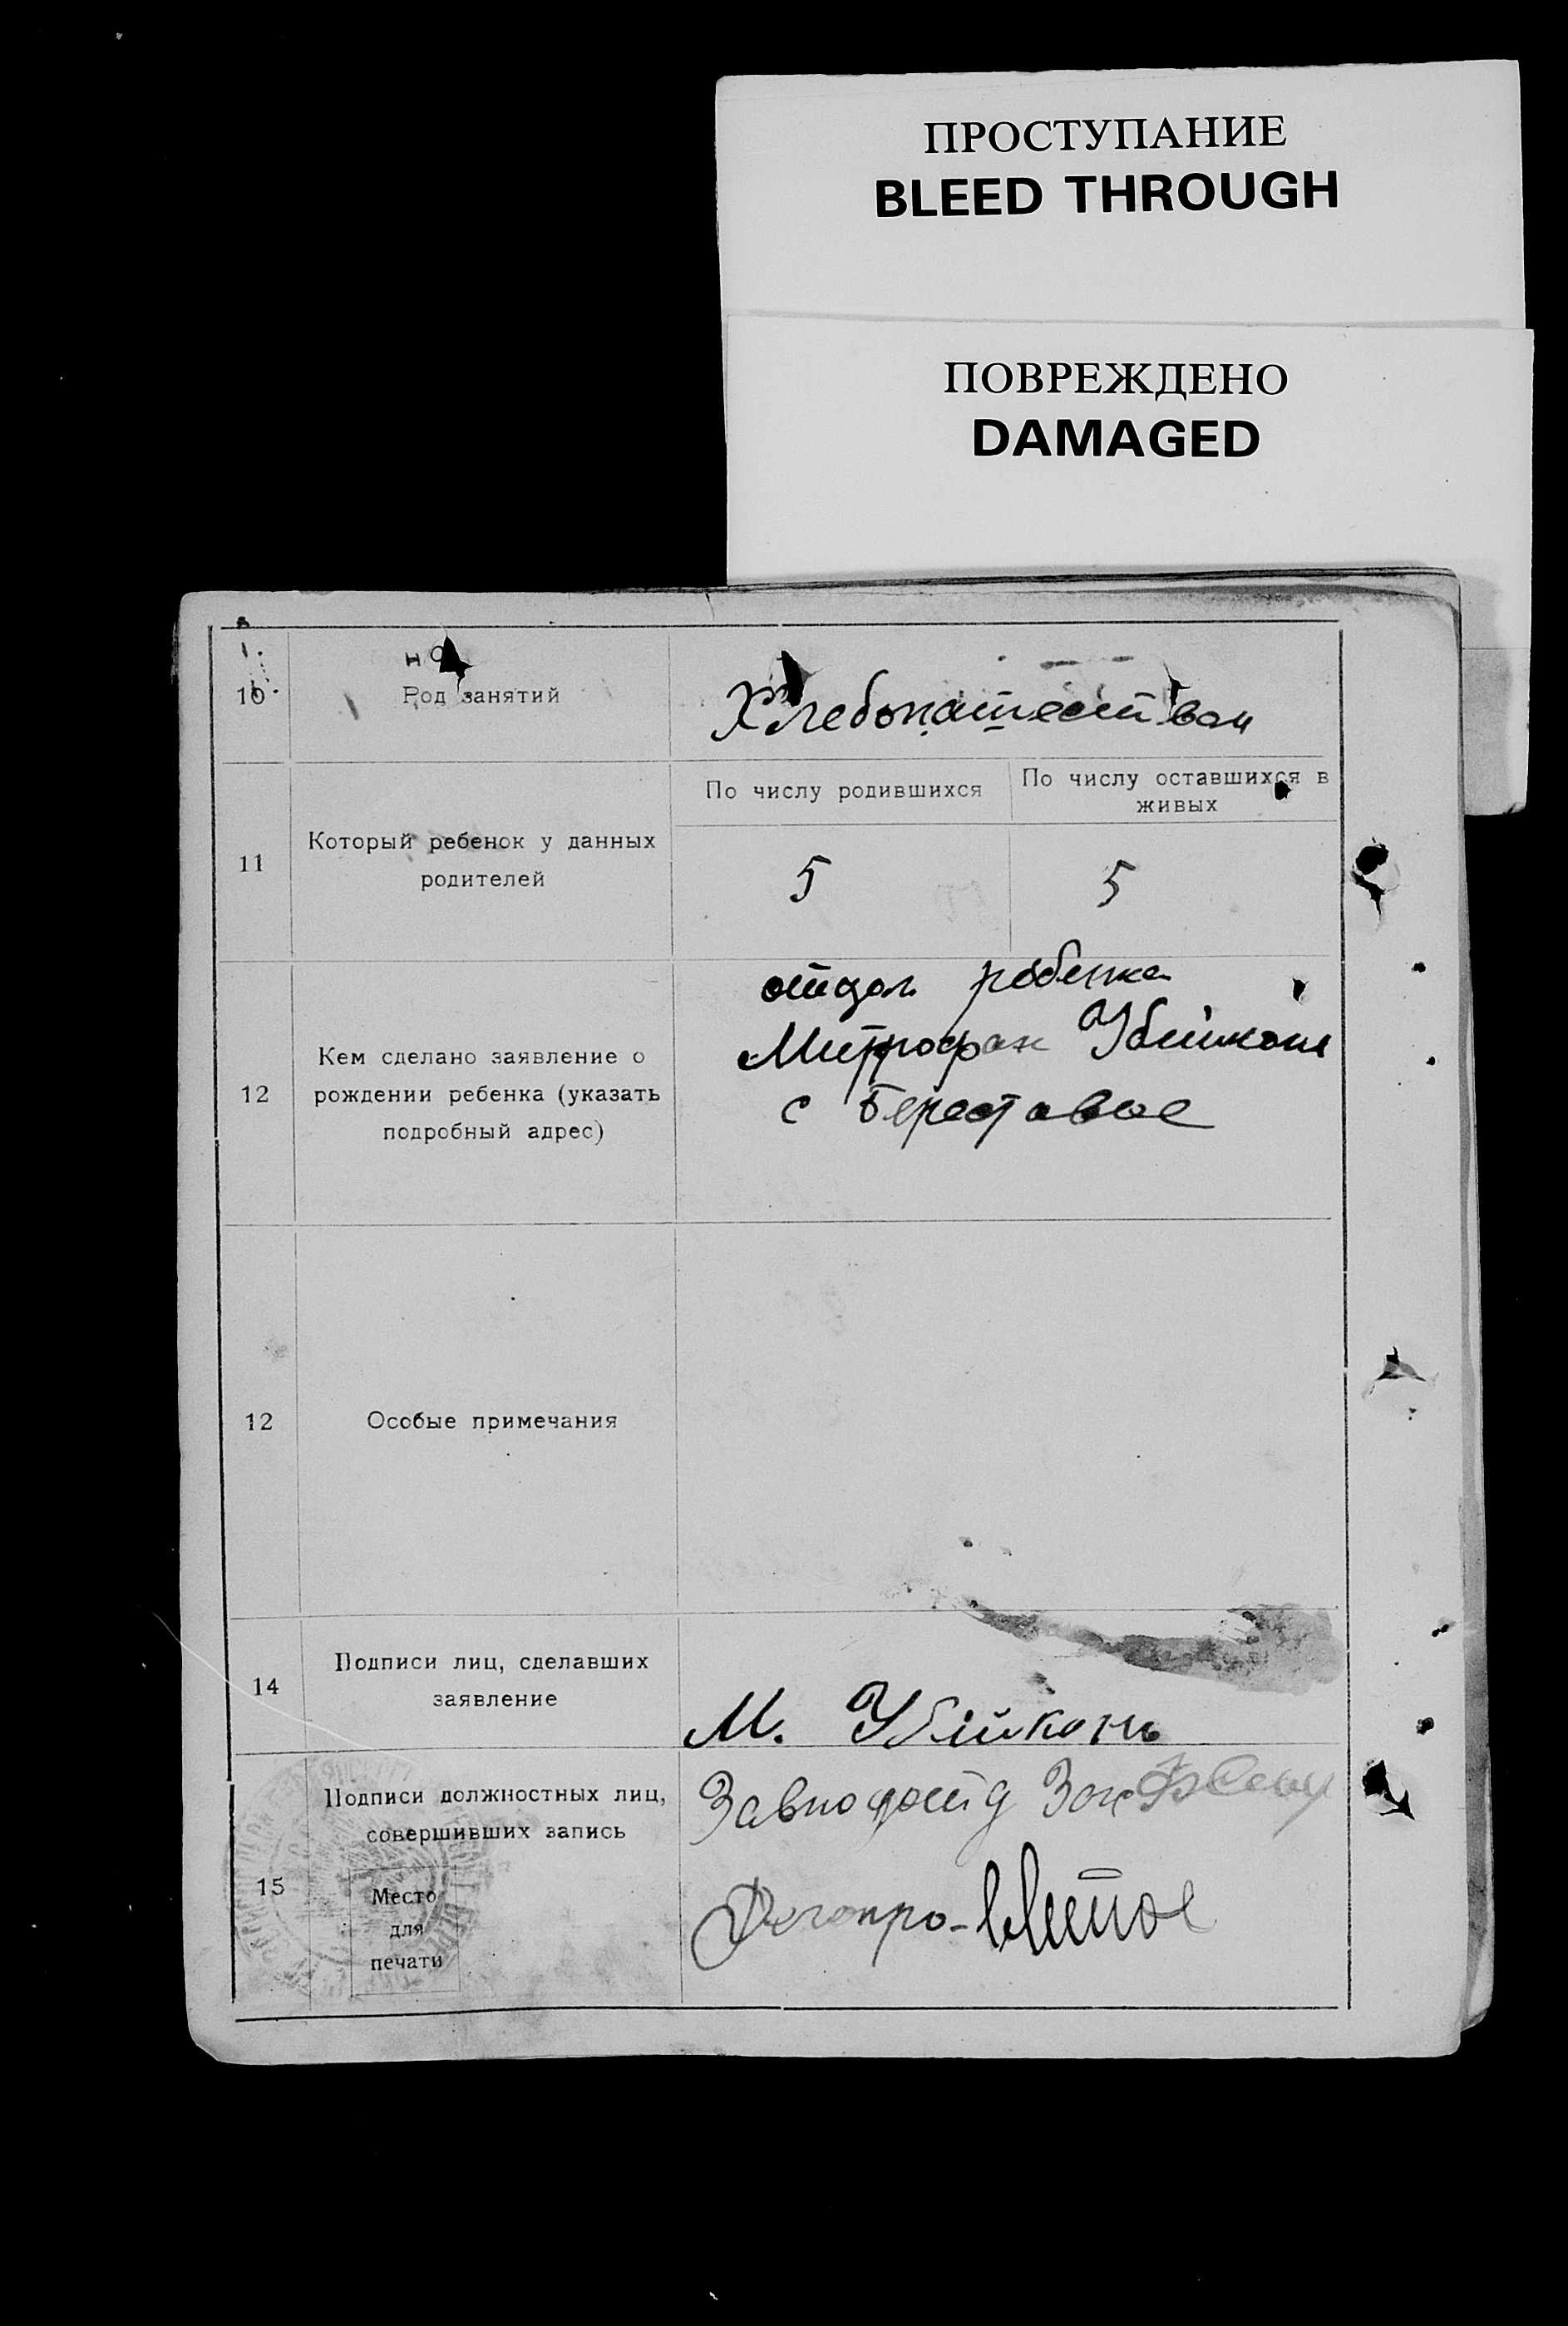 ПРОСТУПАНИЕ
BLEED THROUGH
ПОВРЕЖДЕНО
DAMAGED
10
Род занятий
Хлебопашеством
По числу родившихся
По числу оставшихся в
живых
11
Который ребенок у данных
родителей
5
5
12
Кем сделано заявление о
рождении ребенка (указать
подробный адрес)
ребенка
Митрофан Убийконь
с Берестовое
12
Особые примечания
14
Подписи лиц, сделавших
заявление
М. Убийконь
15
Подписи должностных лиц,
совершивших запись
Место
для
печати